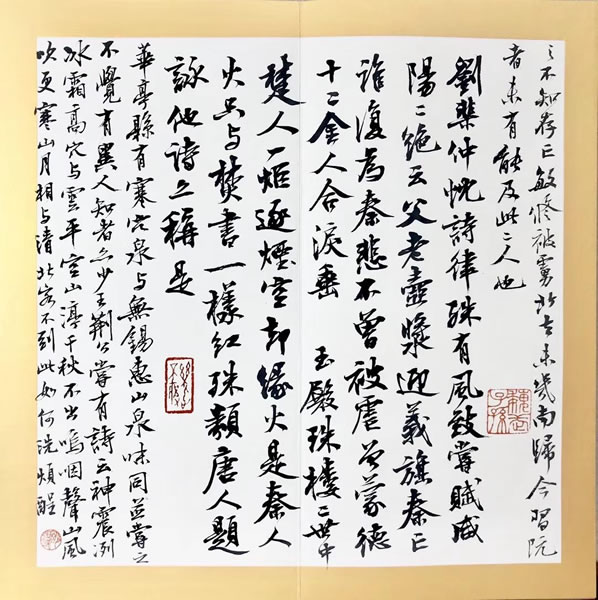 之不知存亡敏修被虜北去未幾南歸今習阮
者未有能及此二人也
劉棐仲忱詩律殊有風致嘗賦咸
陽二絕云父老壺漿迎義旗秦亡
誰復為秦悲不曾被虐曾蒙德
十二金人合淚垂 玉殿珠樓二世中
楚人一炬逐煙空却緣火是秦人
火只与焚書一樣紅殊類唐人題
詠他詩亦稱是
華亭縣有寒穴泉与無錫惠山泉味同並嘗之
不覺有異人知者亦少王荊公嘗有詩云神震冽
冰霜高穴与雲平空山渟千秋不出嗚咽聲山風
吹更寒山月相与清北客不到此如何洗煩酲